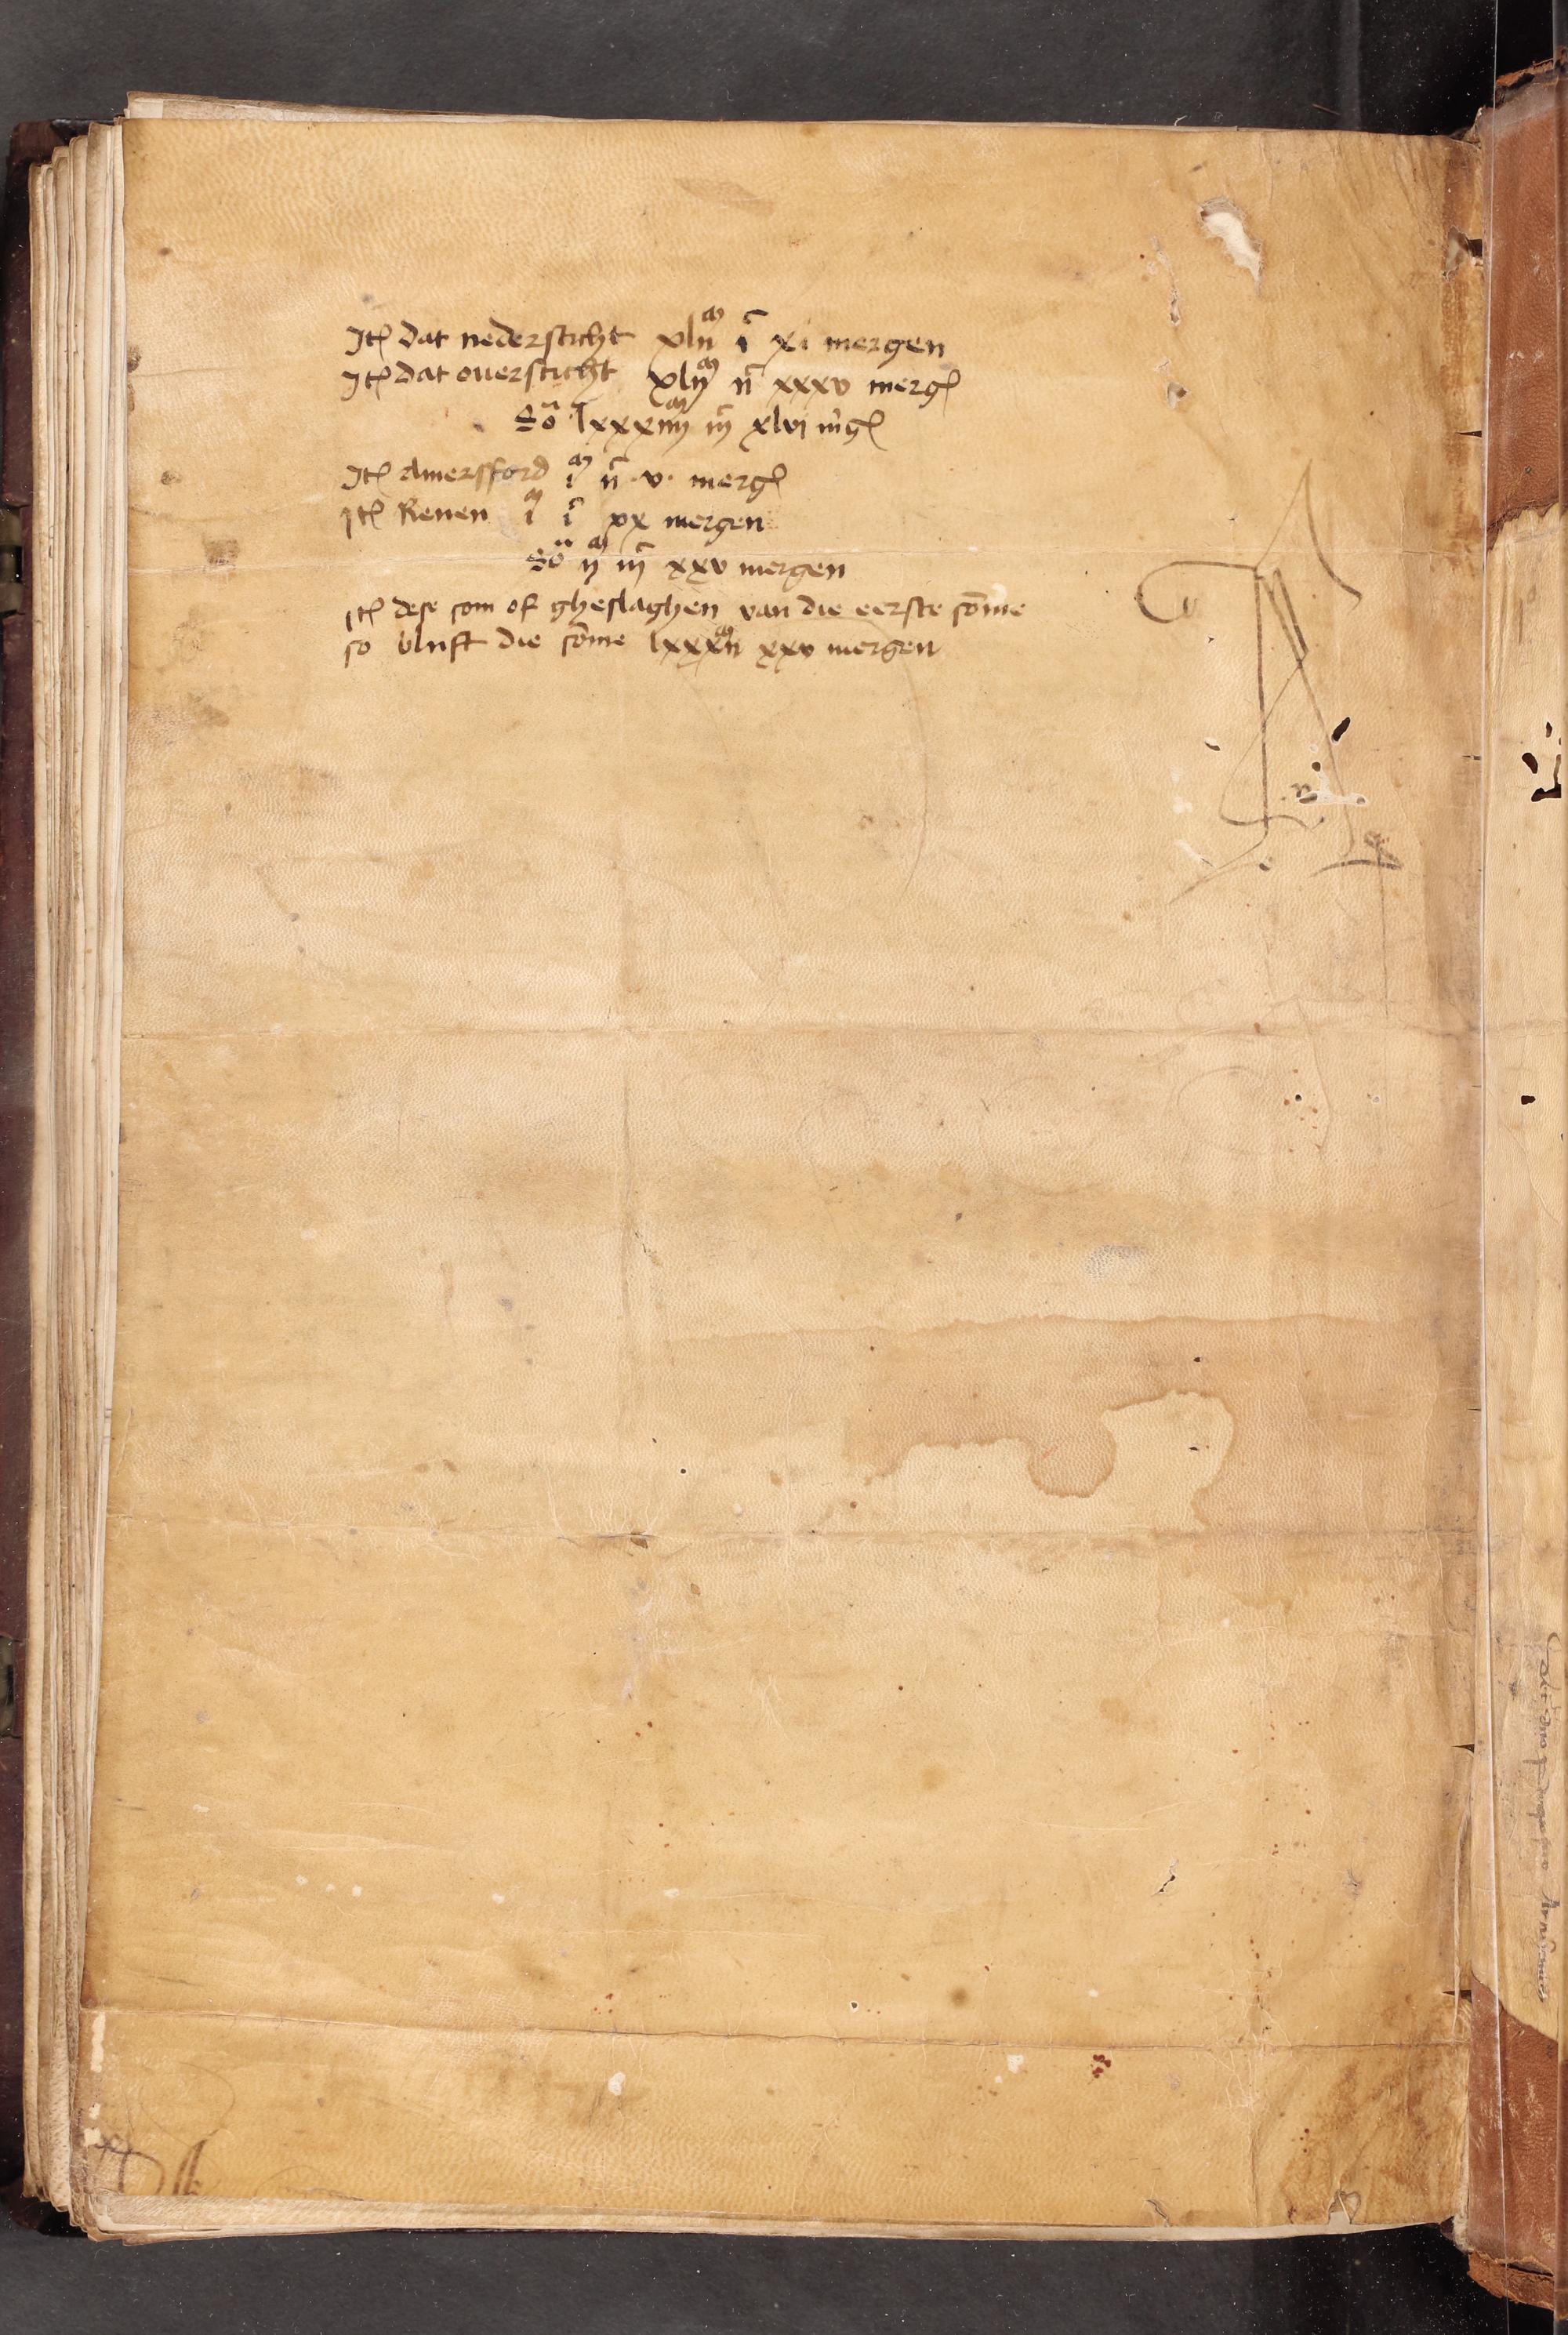 Itē dat nedersticht xlijᵐ iᶜ xi mergen
Itē dat ouersticht xlijᵐ ijᶜ xxxv mergē
Sōᵃ lxxxiiijᵐ iijᶜ xlvj mergē
Itē Amersfford iᵐ ijᶜ · v · mergē
Itē Renen iᵐ iᶜ xx mergen
Sōᵃ ijᵐ iijᶜ xxv mergen
Itē dese som of gheslaghen van die eerste sōme
so blijft die sōme lxxxijᵐ xxv mergen